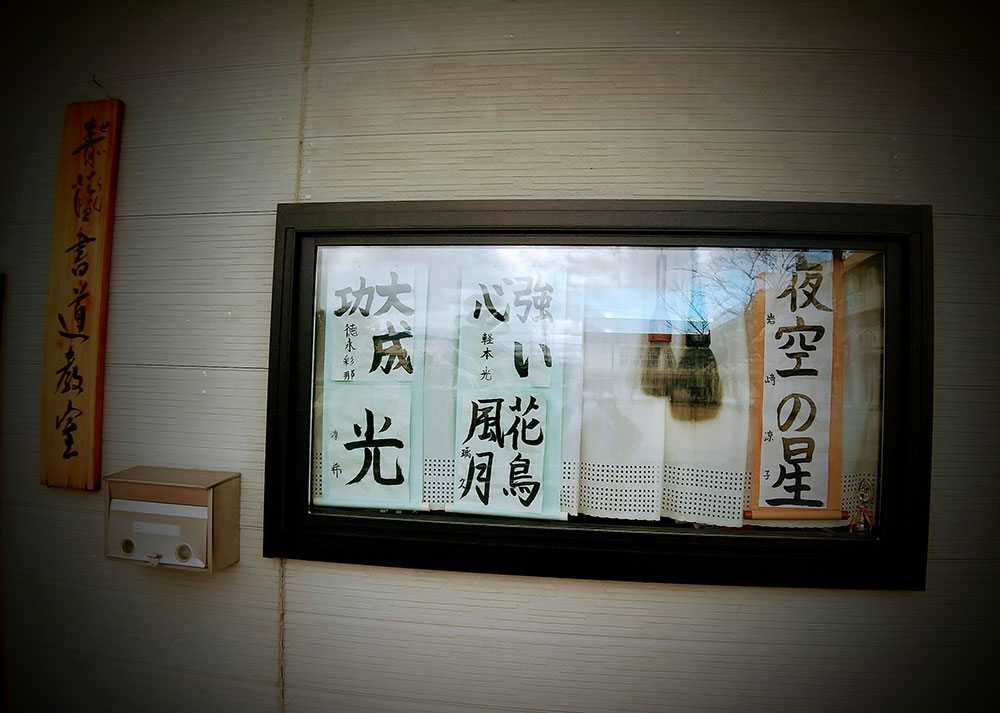 書道教室
大成
功
徳永彩那
光
強い
心
軽本光
花鳥
風月
夜空の星
岩崎涼子